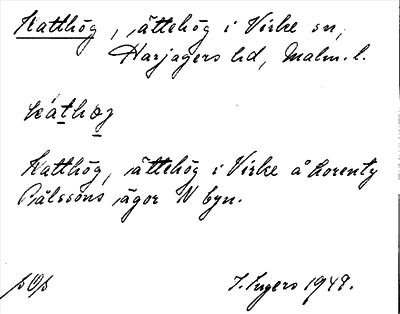 Katthög, ättehög i Virke sn,
Harjagers hd, Malm. l.
kathög
Katthög, ättehög i Virke å Lorenty
Pålssons ägor N byn.
I. Ingers 1949.